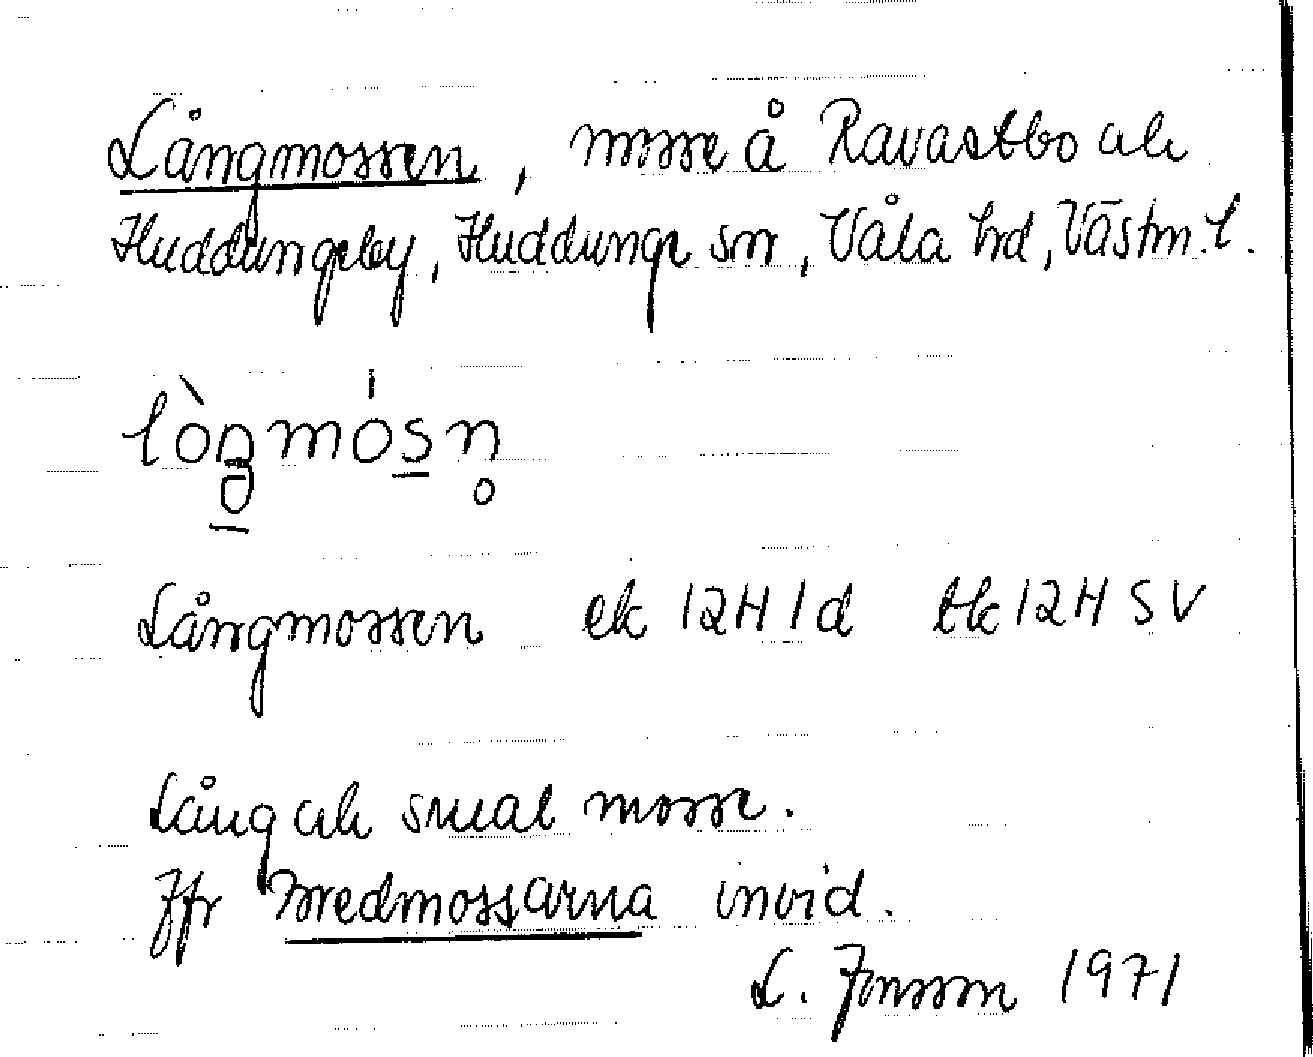 Långmossen, mosse å Ravastbo och
Huddungeby, Huddunge sn, Våla hd, Västm. l.
lòŋ̲mós̲n̥
Långmossen ek 12H1d tk 12H SV
Lång och smal mosse.
Jfr Bredmossarna invid.
L. Jonsson 1971